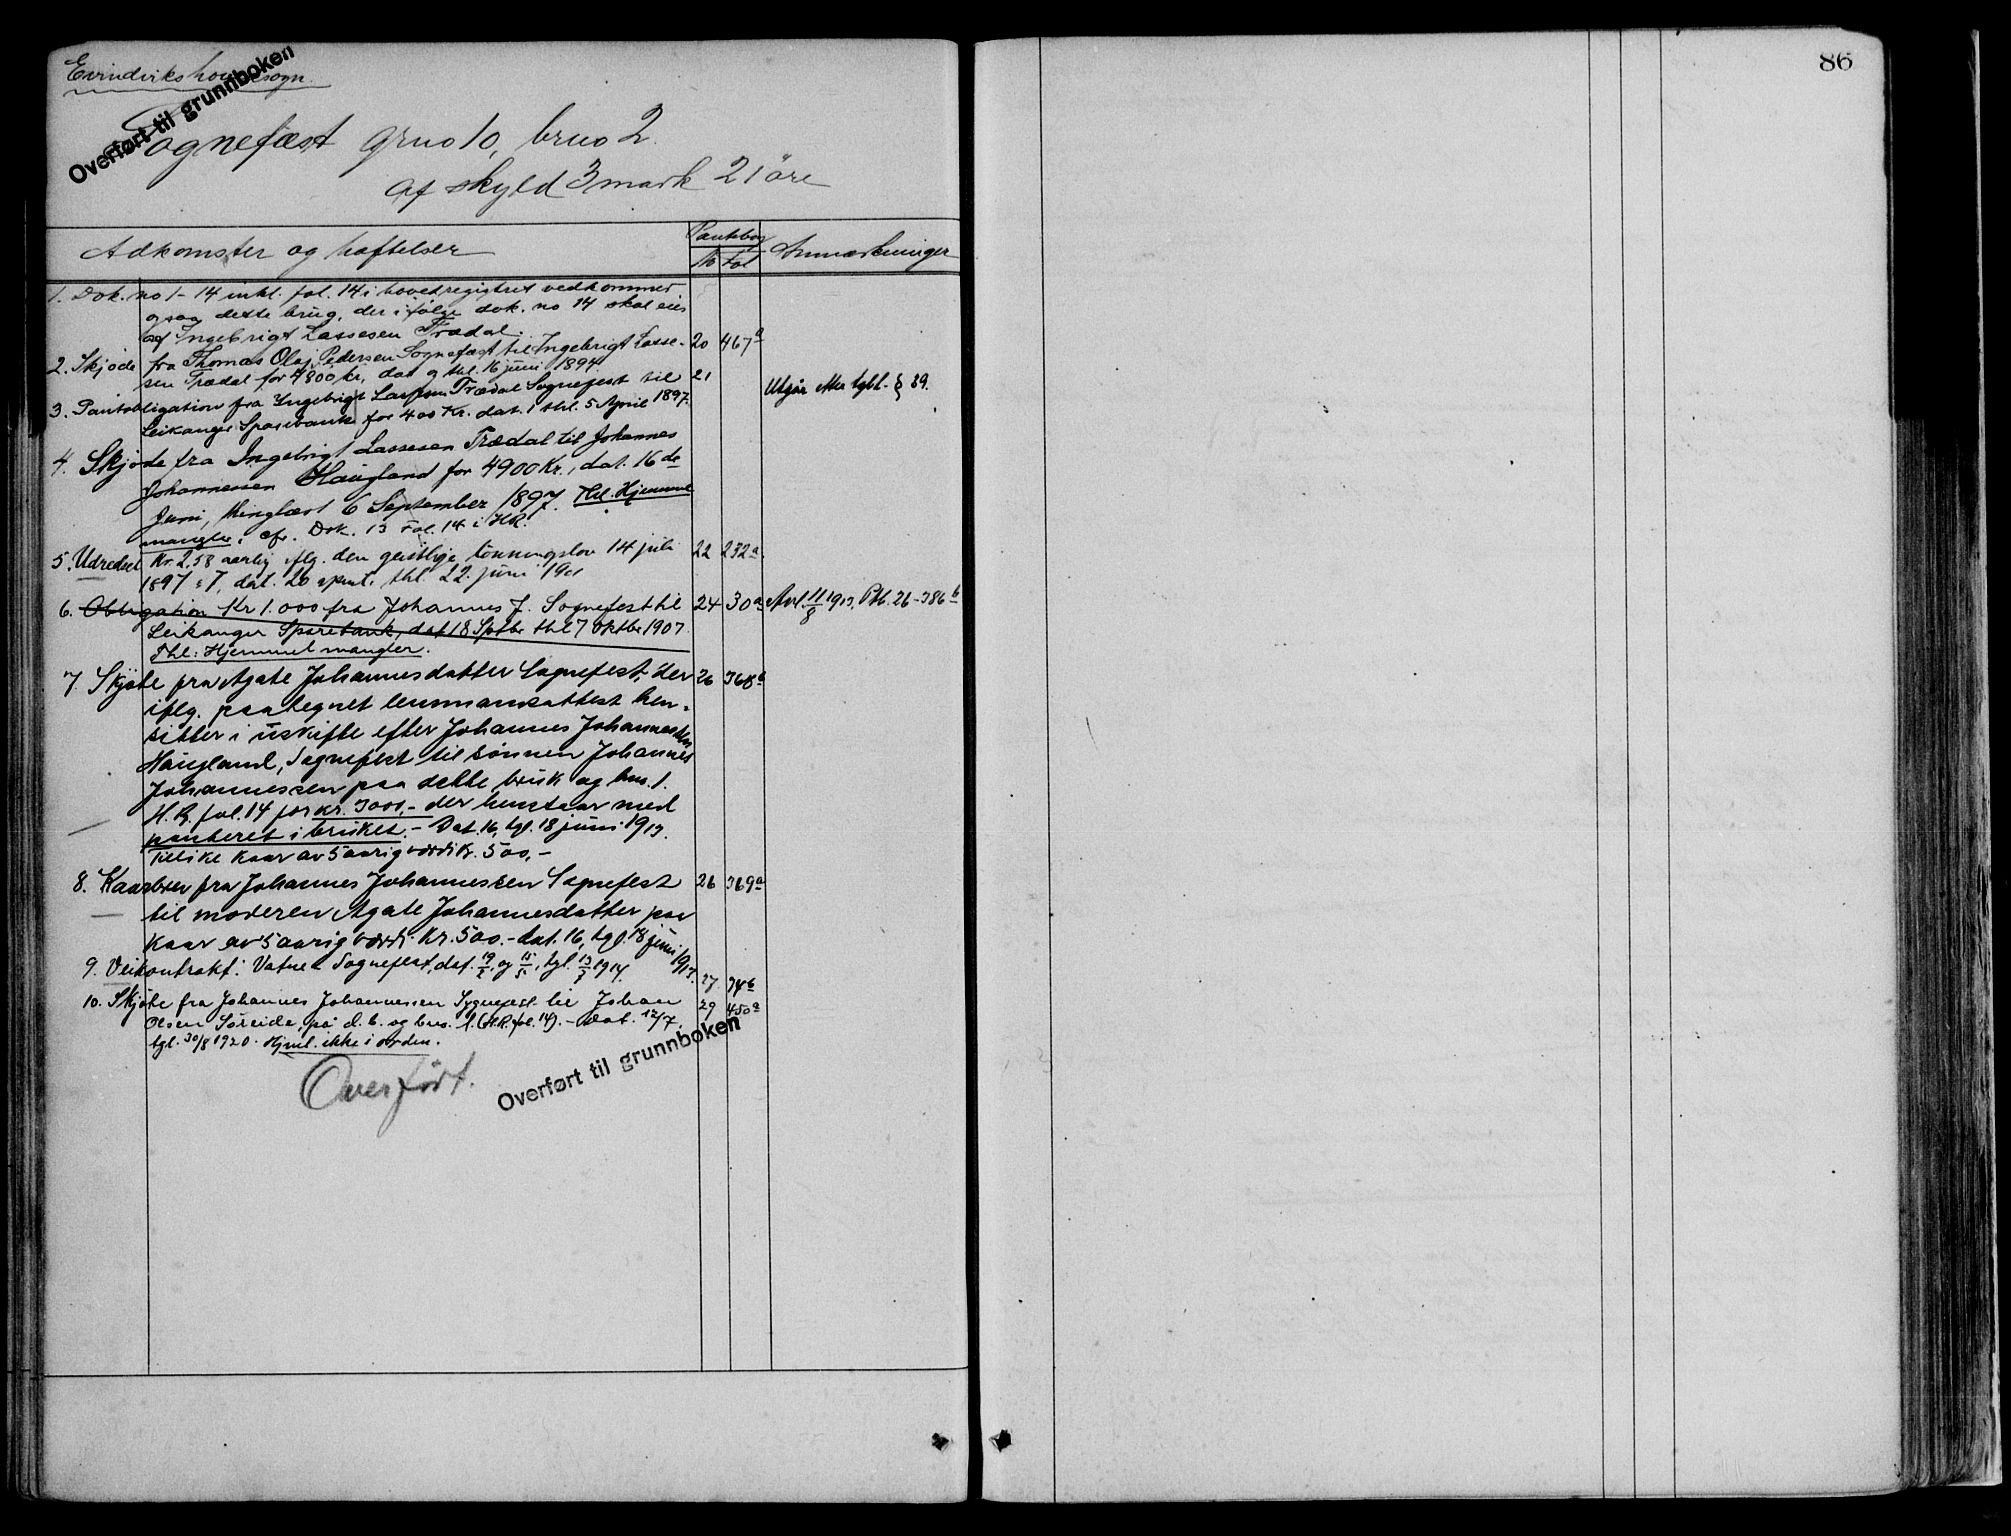 86
Evindviks hovedsogn.
Overført til grunnboken
Sognefæst grno 10, brno 2.
af skyld 3 mark 21 öre
Adkomster og hæftelser Pantebog Anmærkninger
No Fol
1. Dok. no 1-14 inkl. fol. 14 i hovedregistret vedkommer
ogsaa dette brug, der ifølge dok. no 14 skal eies
af Ingebrigt Lassesen Trædal.
2. Skjøde fra Thomas Olaj Pedersen Sognefæst til Ingebrigt Lasse- 20 467a
sen Trædal for 4800 kr, dat og thl. 16 juni 1894
3. Pantobligation fra Ingebrigt Lassesen Trædal Sognefest til 21 Utgår etter tgbl. § 39.
Leikanger Sparebank for 400 Kr. dat. 1 thl. 5 April 1897.
4. Skjøde fra Ingebrigt Lassesen Trædal til Johannes
Johannessen Haugland for 4900 Kr., dat. 16 de
Juni, thinglæst 6 September 1897. Thl. Hjemmel
mangler, cfr. Dok. 13 Fol. 14 i HR.
5. Udredsel Kr. 2,58 aarlig iflg. den geistlige lønningslov 14 juli 22 232a
1897 § 7, dat. 20 thl. 22. juni 19
6. Obligation Kr 1.000 fra Johannes J. Sognefest til 24 30a Avl. 11/8 1913, Ptb. 26-386b
Leikanger Sparebank, dat 18 Sptbr thl 7 Oktbr 1907.
Thl: Hjemmel mangler.
7. Skjøte fra Agate Johannesdatter Sognefest, der 26 368b
iflg. paategnet lensmansattest hen-
sitter i uskifte efter Johannes Johannessen
Haugland, Sognefest til sønnen Johannes
Johannessen paa dette bruk og bno. 1.
H.R. fol. 14 for kr. 3000,- der henstaar med
panteret i bruket. - Dat. 16, tgl. 18 juni 1913.
Tillike kaar av 5 aarig værdi Kr. 500,-
8. Kaarbrev fra Johannes Johannessen Sognefest 26 369a
til moderen Agate Johannesdatter paa
kaar av 5 aarig værdi Kr. 500.- dat. 16, tgl. 18 juni 1913.
9. Veikontrakt: Vatne - Sognefest, dat. 19/2 og 15/5, tgl. 13/7 1914. 27 74b
10. Skjøte fra Johannes Johannessen Sygnefest til Johan 29 450a
Olsen Søreide, på d. b. og bno. 1. (H.R. fol. 14). - Dat. 12/7,
tgl. 30/8 1920. Hjml. ikke i orden.
Overført.
Overført til grunnboken